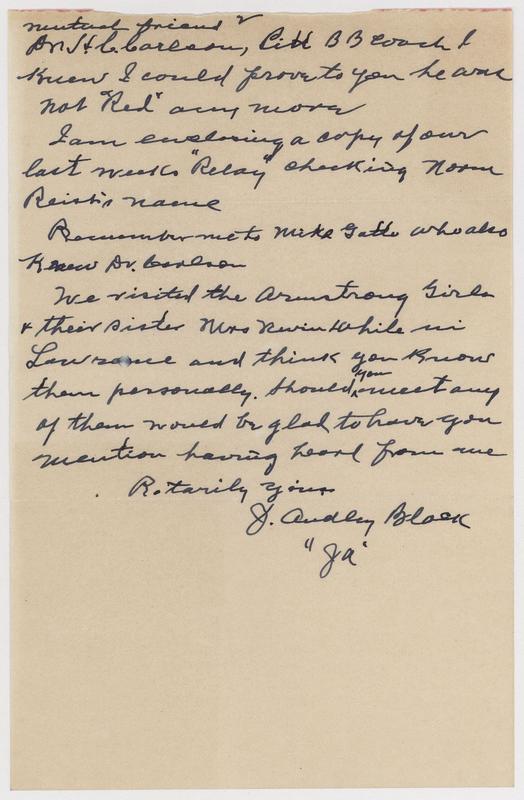 mutual friend
Dr. H. C. Carlson, Pitt BB Coach I
Knew I could prove to you he was
not "Red" any more
I am enclosing a copy of our
last weeks "Relay" checking Norm
Reist's name
Remember me to Mike Getto who also
Knew Dr. Carlson
We visited the Armstrong Girls
& their sister Mrs Kewin While in
Lawrence and think you Know
them personally. Should you meet any
of them would be glad to have you
mention having heard from me
Rotarily yours
J. Audley Black
"JA"